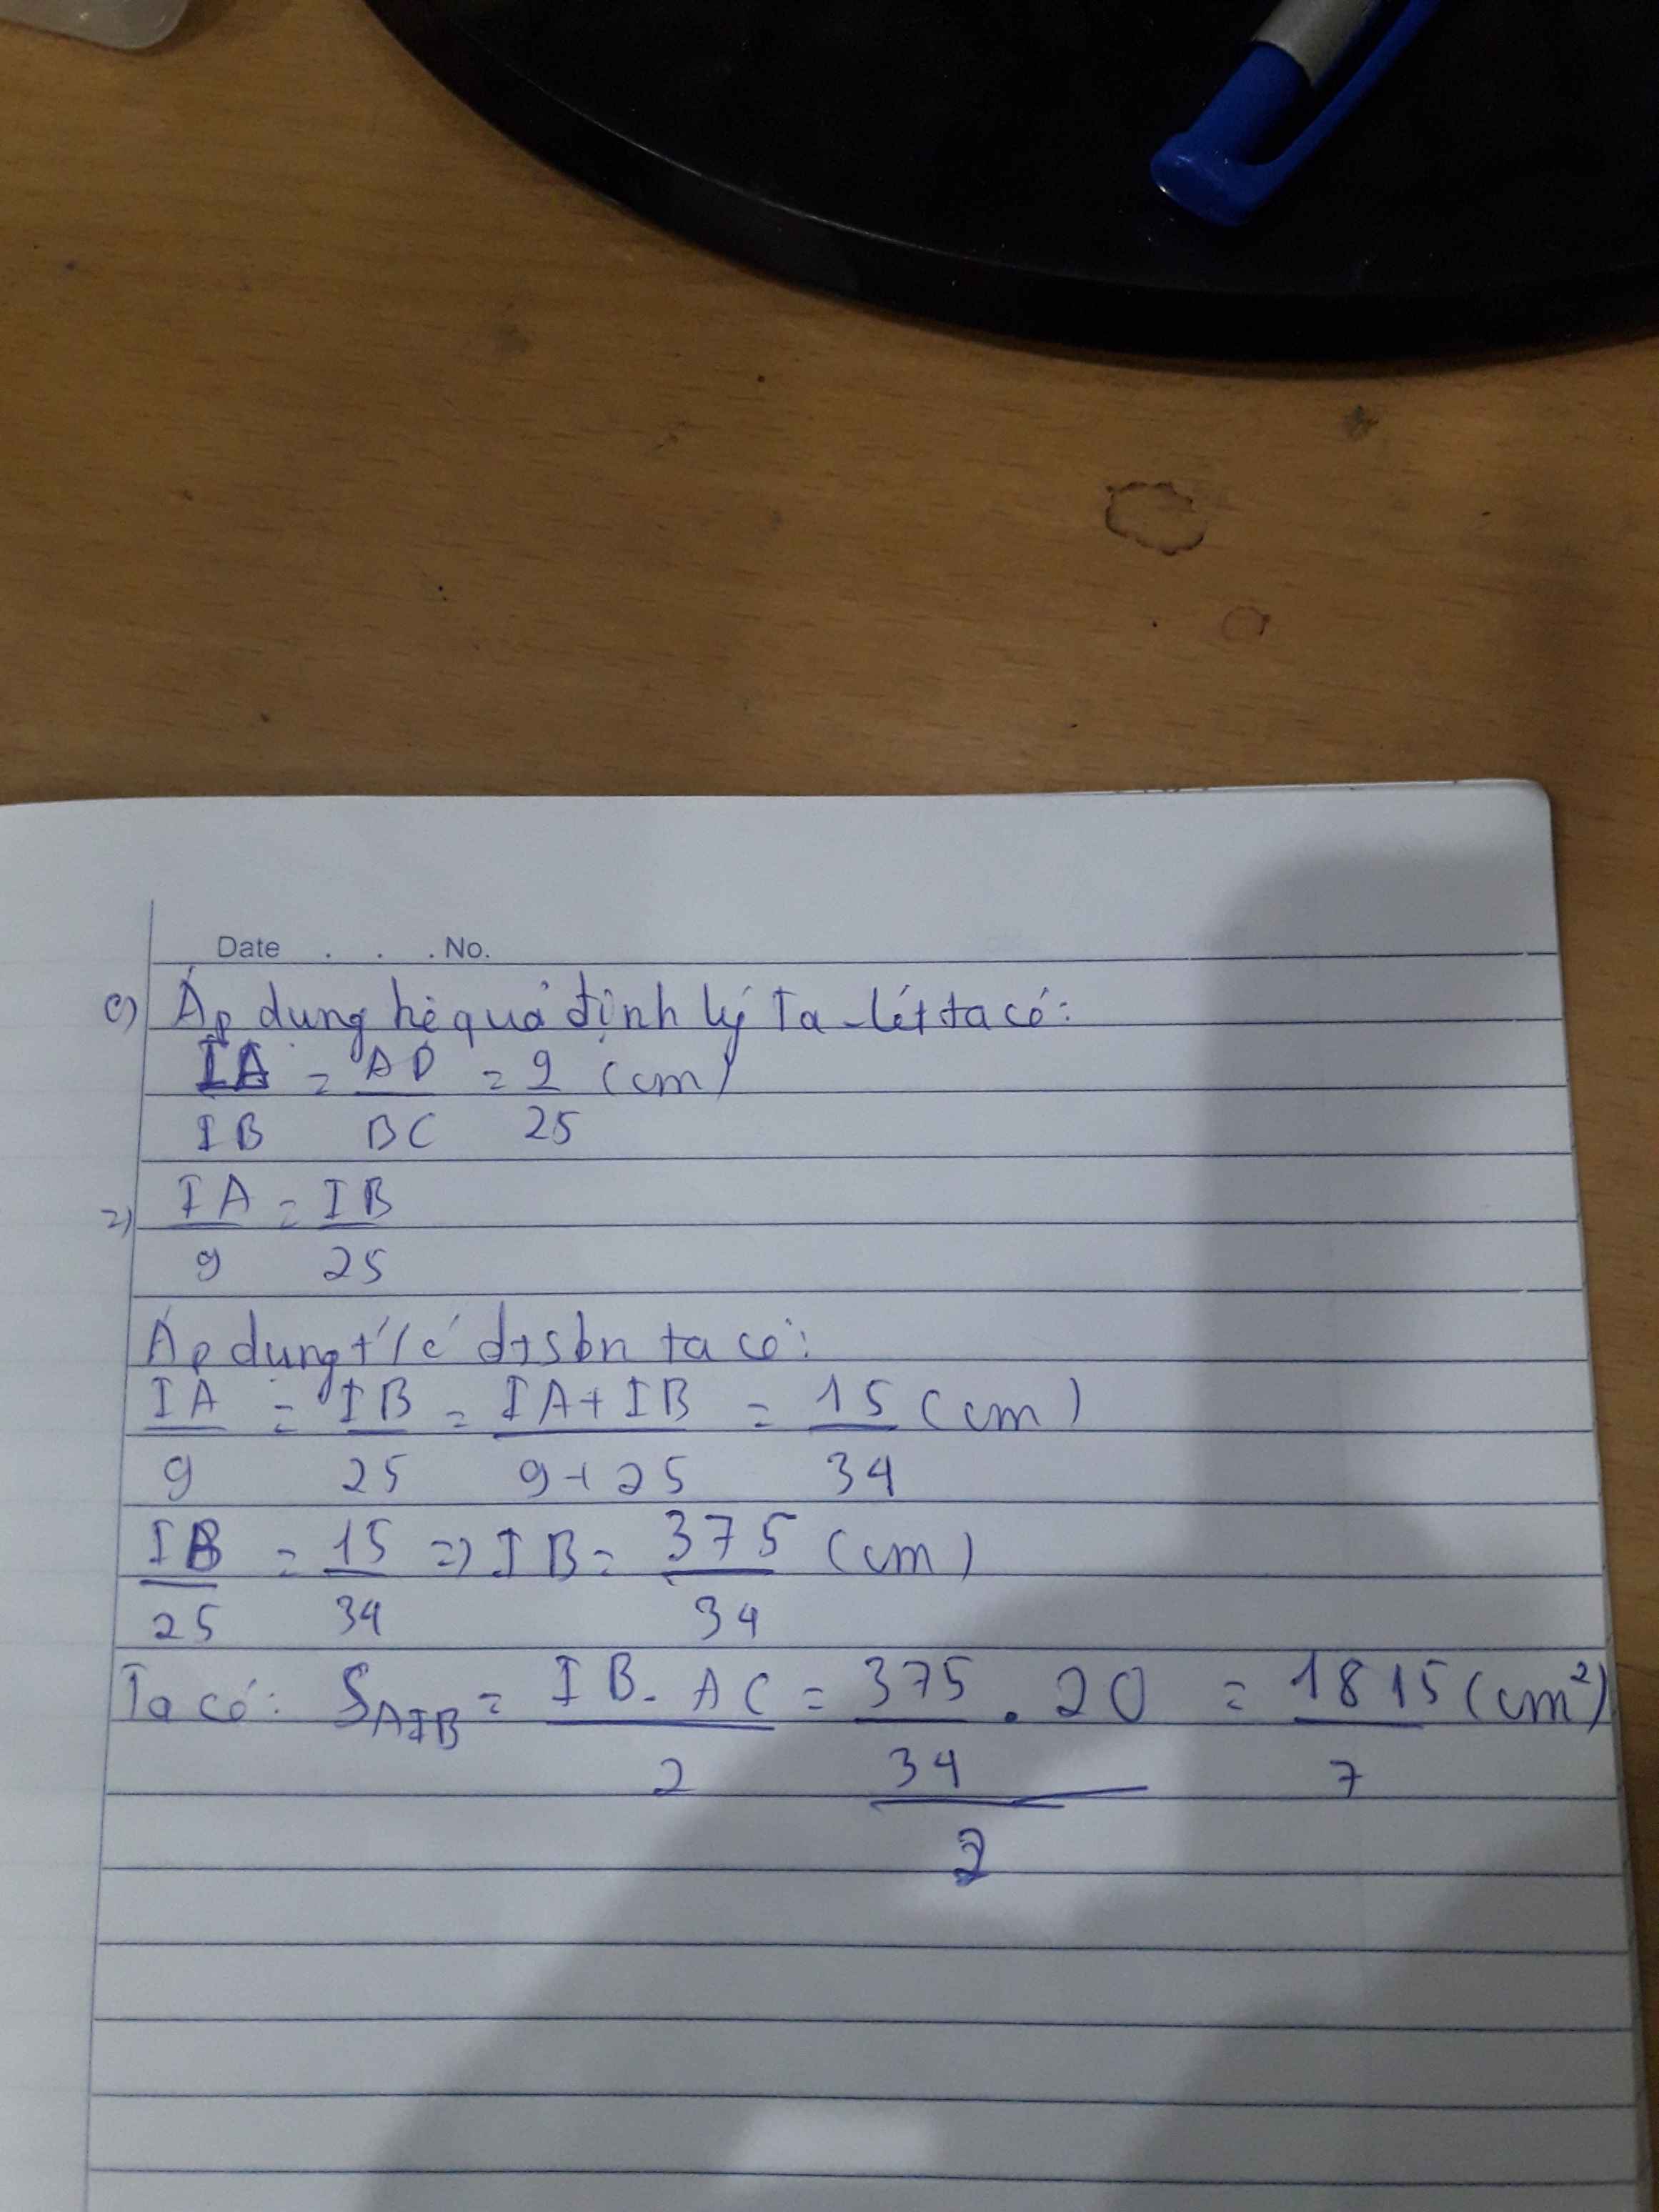 Date . . . No.
c) Áp dụng hệ quả định lý Ta-lét ta có:
IA/IB = AD/BC = 9/25 (cm)
=) IA/9 = IB/25
Áp dụng t/c dtsbn ta có:
IA/9 = IB/25 = IA+IB/9+25 = 15/34 (cm)
IB/25 = 15/34 => IB = 375/34 (cm)
Ta có: S_AIB = IB.AC/2 = 375/34 . 20/2 = 1815/7 (cm²)